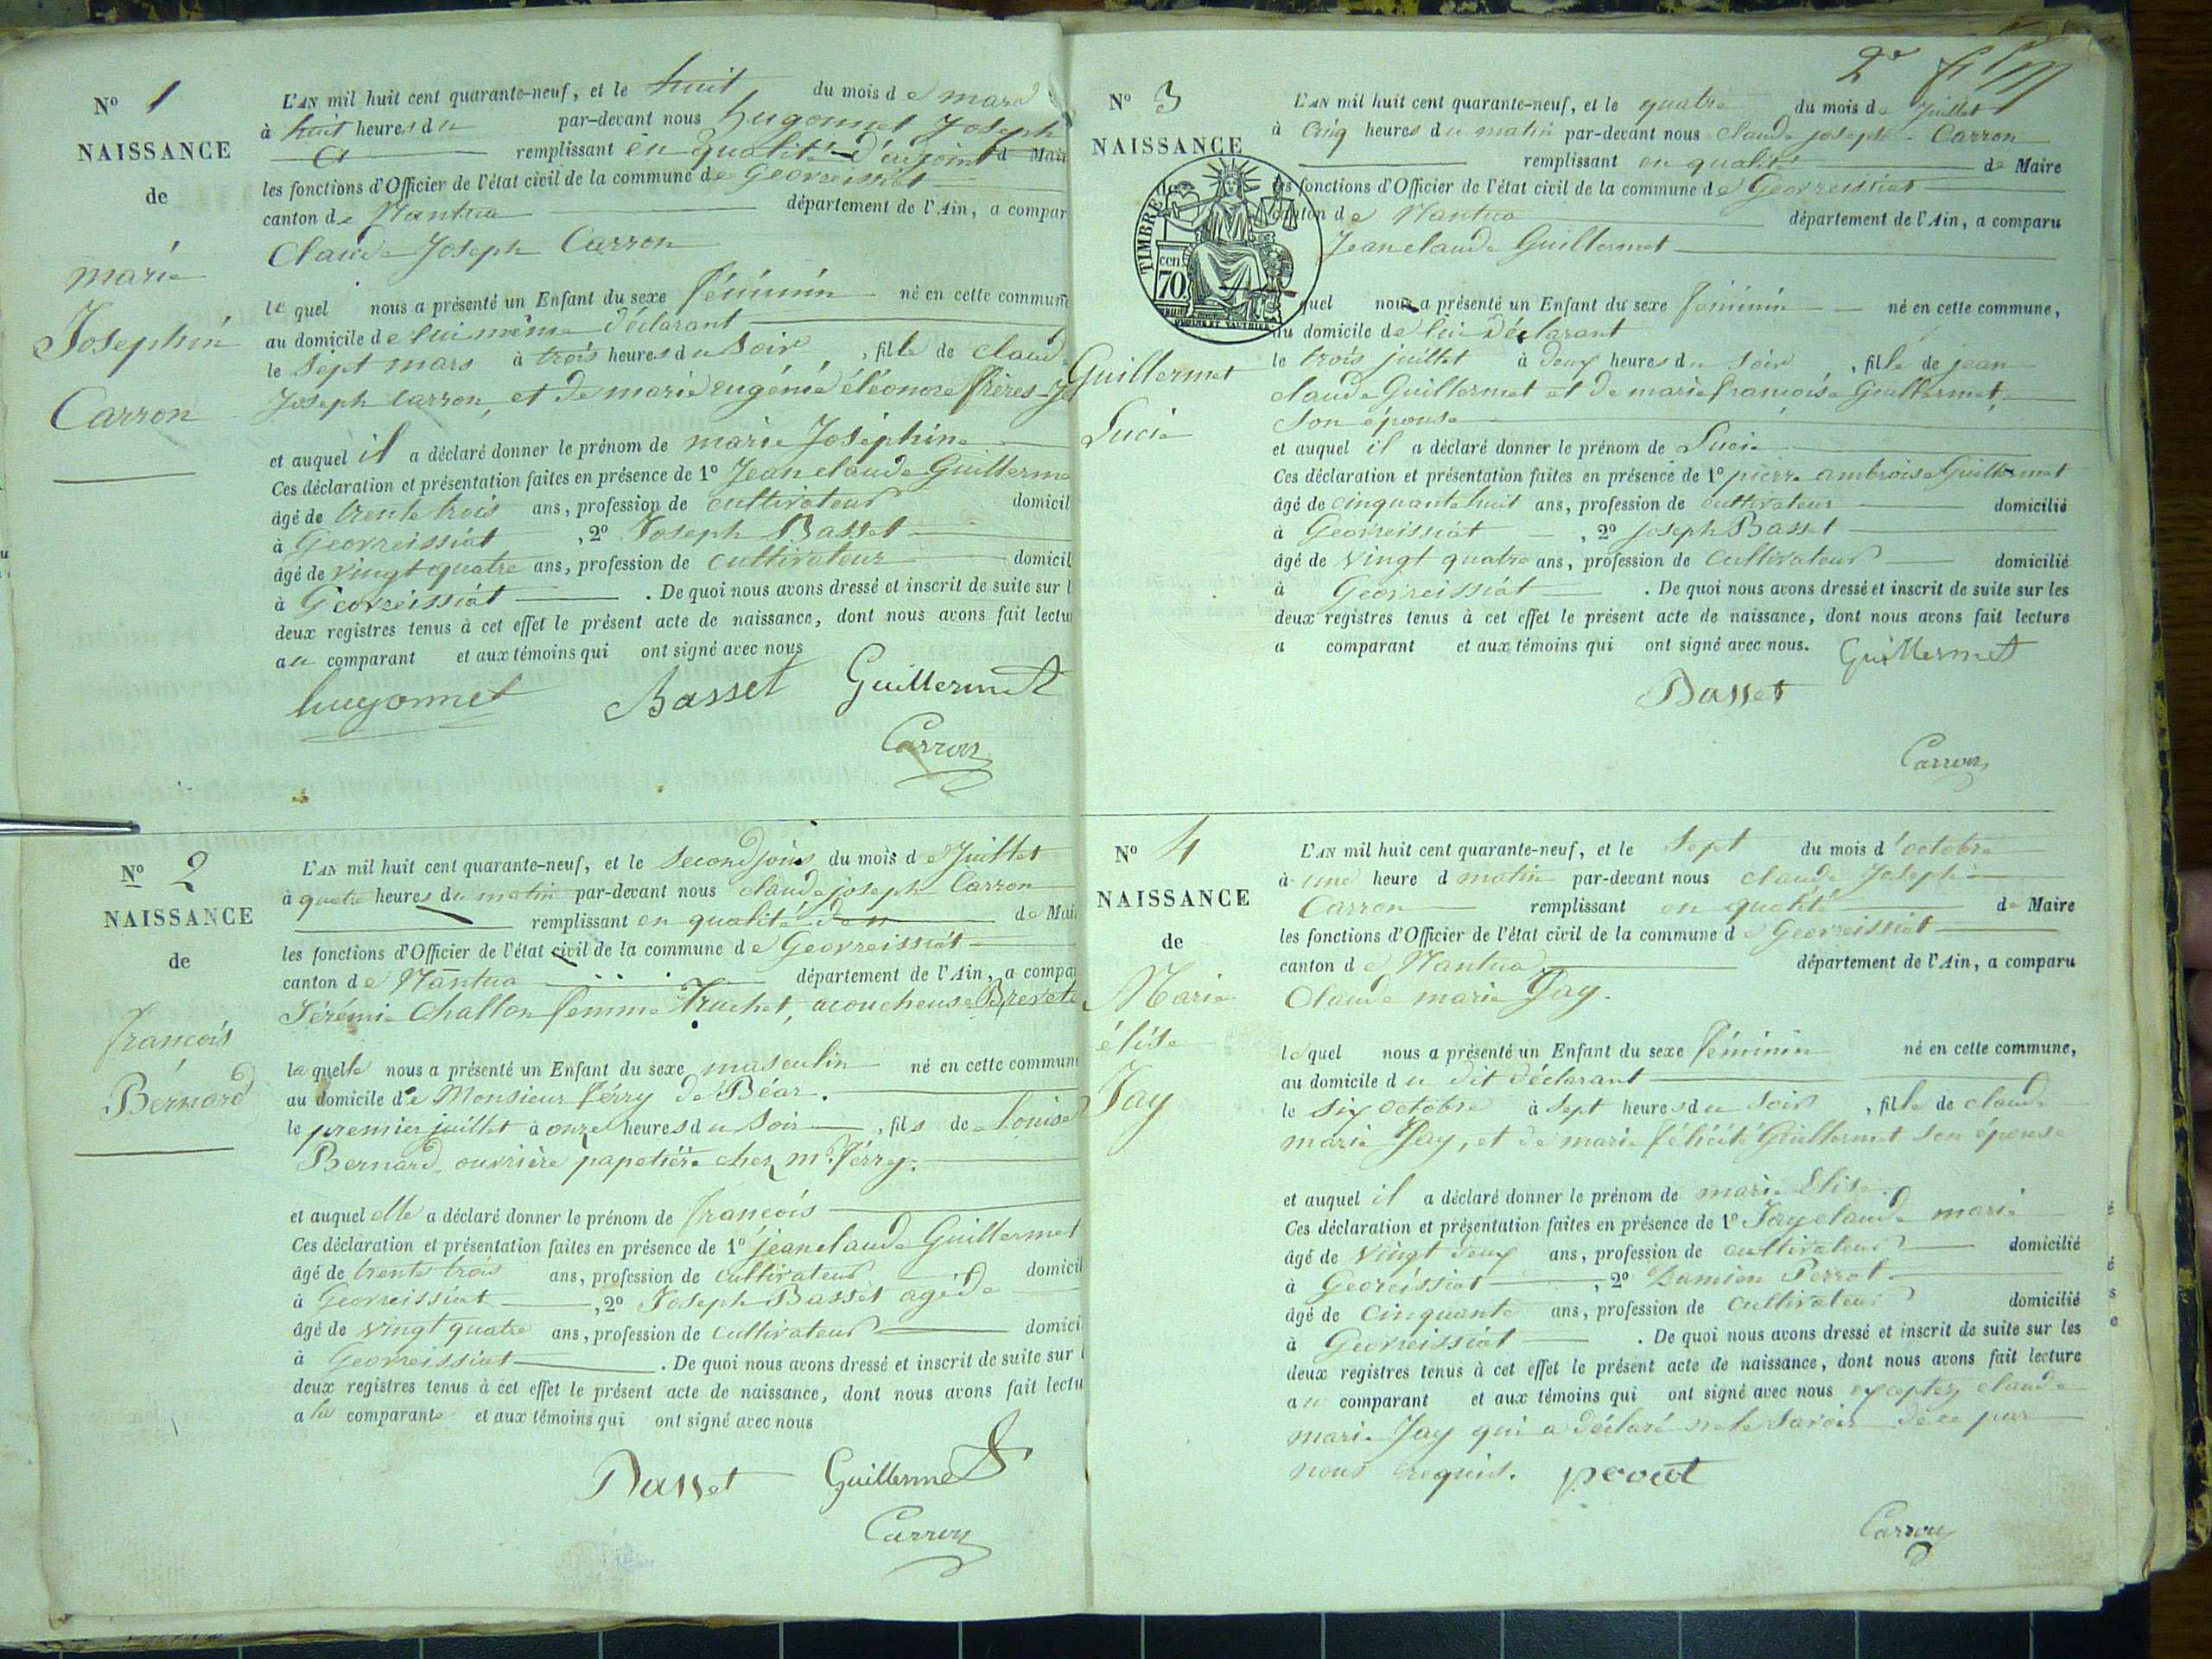 N° 1
NAISSANCE
de
marie
Joséphin
Carron
L'AN mil huit cent quarante-neuf, et le huit du mois de mars
à huit heures du par-devant nous hugonnet Joseph
remplissant en qualité d'adjoint d Mai
les fonctions d'Officier de l'état civil de la commune de Geovreissiat
canton de Nantua département de l'Ain, a compar
Claude Joseph Carron
le quel nous a présenté un Enfant du sexe féminin né en cette commune
au domicile de lui même déclarant
le sept mars à trois heures du soir, fille de claude
Joseph Carron, et de marie eugénie éléonore frères-J
et auquel il a déclaré donner le prénom de marie Joséphine
Ces déclaration et présentation faites en présence de 1° Jean claude Guillerme
âgé de trente trois ans, profession de cultivateur domicil
à Geovreissiat, 2° Joseph Basset
âgé de vingt quatre ans, profession de cultivateur domicil
à Geovreissiat. De quoi nous avons dressé et inscrit de suite sur l
deux registres tenus à cet effet le présent acte de naissance, dont nous avons fait lectu
au comparant et aux témoins qui ont signé avec nous
hugonnet Basset Guillermet
Carron
N° 2
NAISSANCE
de
francois
Bérnard
L'AN mil huit cent quarante-neuf, et le second jour du mois de Juillet
à quatre heures du matin par-devant nous claude joseph Carron
remplissant en qualité de Mai
les fonctions d'Officier de l'état civil de la commune de Geovreissiat
canton de Nantua département de l'Ain, a compa
Jérémie Challon femme Truchet, acoucheuse Brevete
la quelle nous a présenté un Enfant du sexe masculin né en cette commun
au domicile de Monsieur férry de Béar.
le premier juillet à onze heures du soir, fils de Louise
Bernard, ouvrière papetière chez mr. férry.
et auquel elle a déclaré donner le prénom de francois
Ces déclaration et présentation faites en présence de 1° jean claude Guillermet
âgé de trente trois ans, profession de cultivateur domicil
à Geovreissiat, 2° Joseph Basset agé de
âgé de vingt quatre ans, profession de cultivateur domici
à Geovreissiat. De quoi nous avons dressé et inscrit de suite sur l
deux registres tenus à cet effet le présent acte de naissance, dont nous avons fait lectu
a la comparante et aux témoins qui ont signé avec nous
Basset Guillermet
Carron
2e
N° 3
NAISSANCE
TIMBRE
cen.
70.
Guillermet
Lucie
L'AN mil huit cent quarante-neuf, et le quatre du mois de Juillet
à cinq heures du matin par-devant nous claude joseph Carron
remplissant en qualité de Maire
les fonctions d'Officier de l'état civil de la commune de Geovreissiat
canton de Nantua département de l'Ain, a comparu
Jean claude Guillermet
quel nous a présenté un Enfant du sexe féminin né en cette commune,
au domicile de lui déclarant
le trois juillet à deux heures du soir, fille de jean
claude Guillermet et de marie francoise Guillermet,
son épouse
et auquel il a déclaré donner le prénom de Lucie
Ces déclaration et présentation faites en présence de 1° pierre ambroise Guillermet
âgé de cinquante huit ans, profession de cultivateur domicilié
à Geovreissiat, 2° joseph Basset
âgé de vingt quatre ans, profession de cultivateur domicilié
à Geovreissiat. De quoi nous avons dressé et inscrit de suite sur les
deux registres tenus à cet effet le présent acte de naissance, dont nous avons fait lecture
a comparant et aux témoins qui ont signé avec nous. Guillermet
Basset
Carron
N° 4
NAISSANCE
de
Marie
élise
Jay
L'AN mil huit cent quarante-neuf, et le sept du mois d'octobre
à une heure d matin par-devant nous claude Joseph
Carron remplissant en qualité de Maire
les fonctions d'Officier de l'état civil de la commune de Geovreissiat
canton de Nantua département de l'Ain, a comparu
Claude marie Jay.
le quel nous a présenté un Enfant du sexe féminin né en cette commune,
au domicile du dit déclarant
le six octobre à sept heures du soir, fille de claude
marie Jay, et de marie félicité Guillermet son épouse
et auquel il a déclaré donner le prénom de marie Elise.
Ces déclaration et présentation faites en présence de 1° Jay claude marie
âgé de vingt deux ans, profession de cultivateur domicilié
à Georeissiat, 2° Damien Perrot
âgé de cinquante ans, profession de cultivateur domicilié
à Geovreissiat. De quoi nous avons dressé et inscrit de suite sur les
deux registres tenus à cet effet le présent acte de naissance, dont nous avons fait lecture
au comparant et aux témoins qui ont signé avec nous exceptez claude
marie Jay qui a déclaré ne le savoir de ce par
nous requis. perrot
Carron